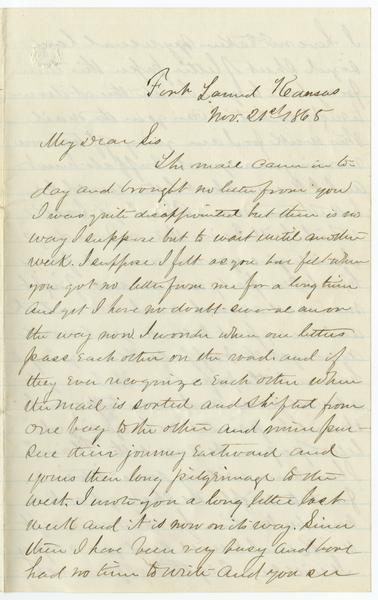 Fort Larned Kansas
Nov. 21st 1865
My dear Sis
The mail came in to-
day and brought no letter from you
I was quite disappointed but there is no
way I suppose but to wait until another
week. I suppose I felt as you have felt when
you got no letter from me for a long time
and yet I have no doubt several are on
the way now. I wonder when our letters
pass each other on the road and if
they ever recognize each other when
the mail is sorted and shifted from
one bag to the other and mine pur-
sue their journey Eastward and
yours their long pilgrimage to the
west. I wrote you a long letter last
week and it is now on its way. Since
then I have been very busy and have
had no time to write and you see